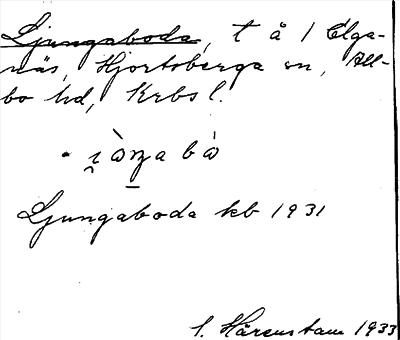 Ljungaboda, t å 1 Elga-
näs, Hjortsberga sn, All-
bo hd, Krbs l.
Ljungaboda kb 1931
S. Hårenstam 1933